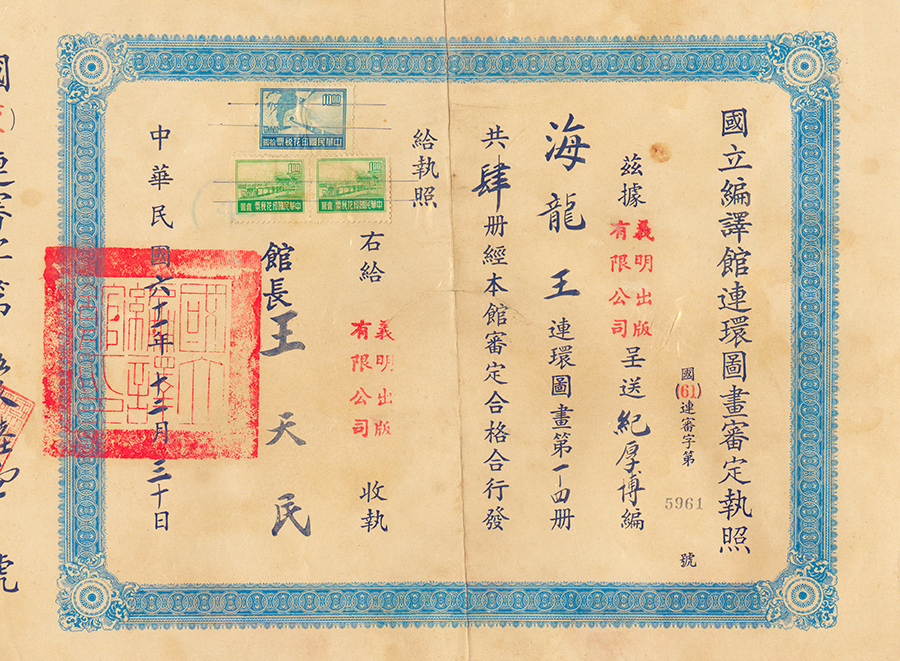 國立編譯館連環圖畫審定執照
國(61)連審字第 5961 號
茲據義明出版有限公司呈送紀厚博編
海龍王連環圖畫第一—四册
共肆册經本館審定合格合行發
給執照
右給義明出版有限公司收執
館長王天民
中華民國六十一年十二月三十日
10.00
中華民國印花稅票 拾圓
1.00
中華民國印花稅票 壹圓
1.00
中華民國印花稅票 壹圓
國
號